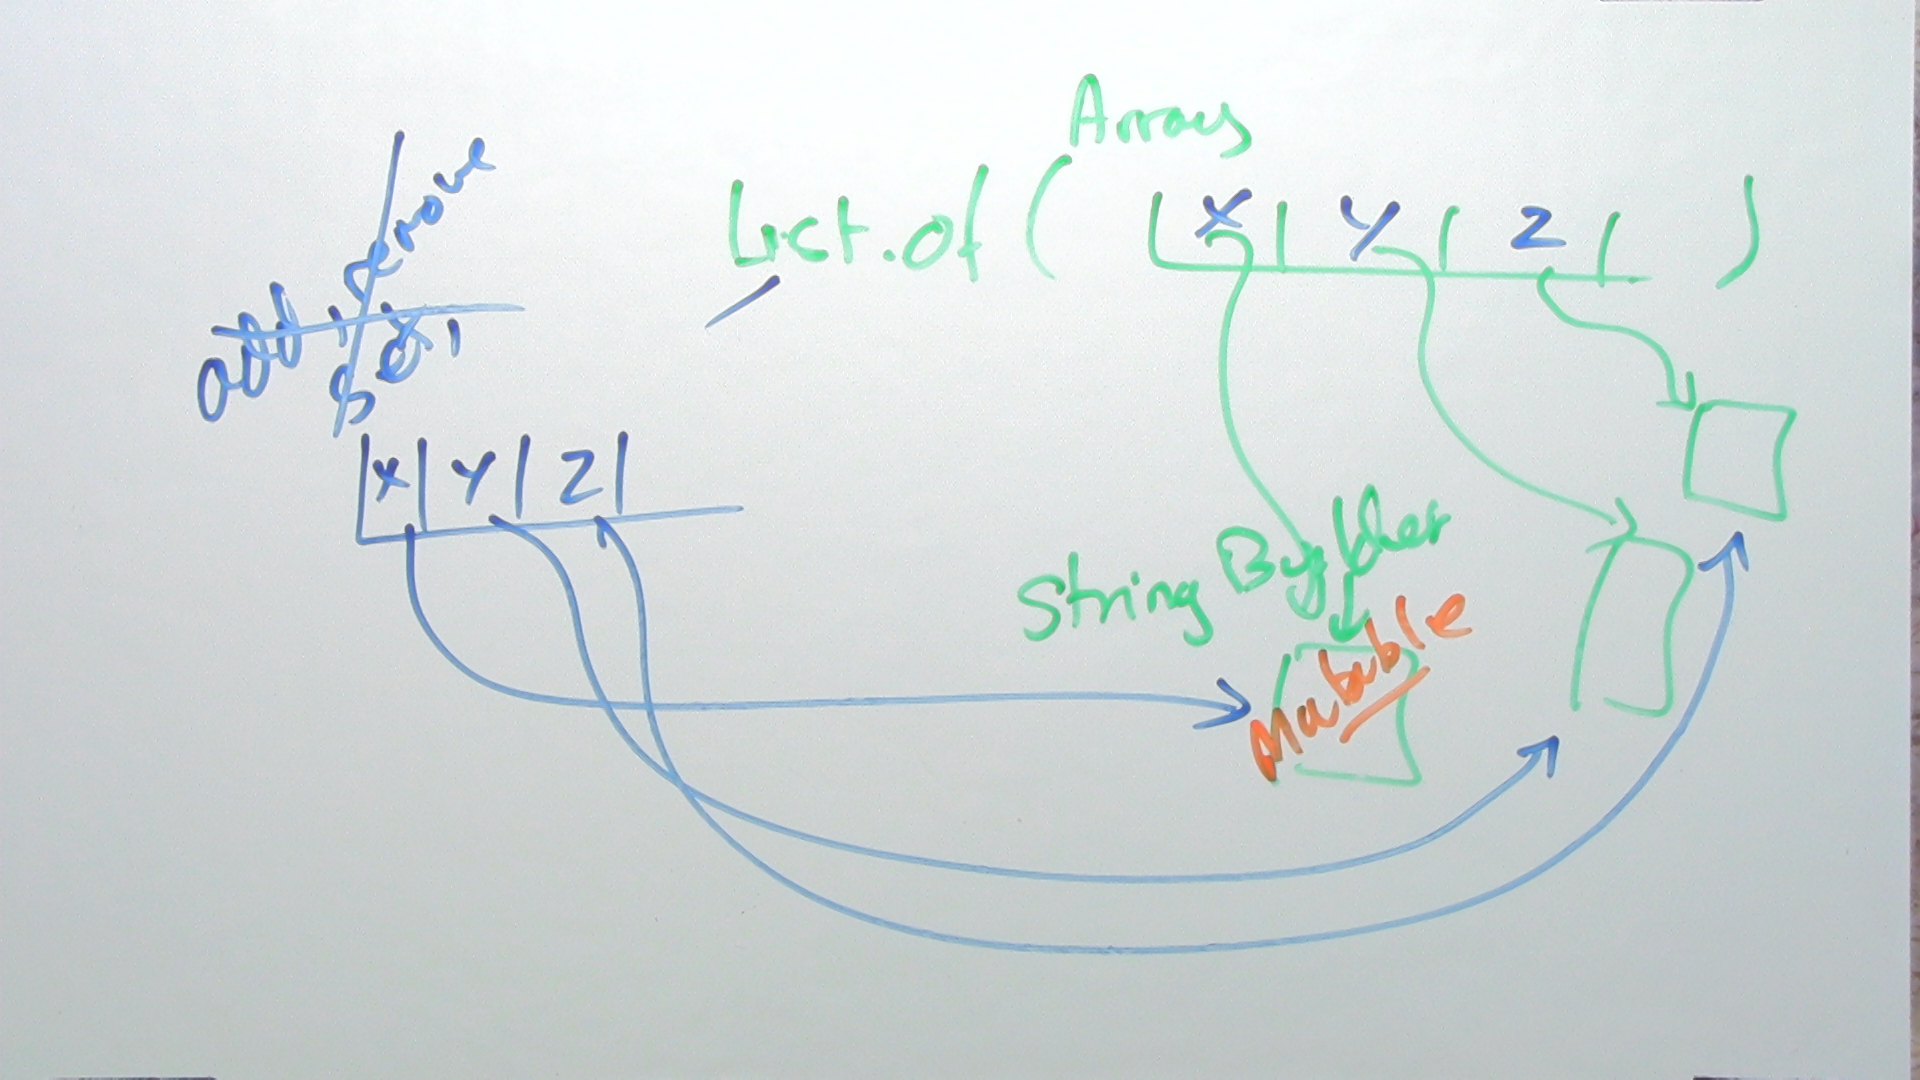 Arrays
List.of ( | X | Y | Z | )
add, remove
set,
|X| Y | Z |
String Buffer
Mutable